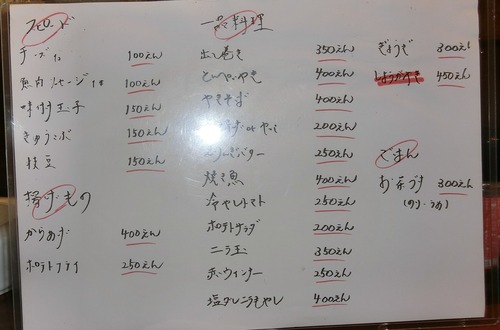 スピード
チーズ 100えん
魚肉ソーセージ 100えん
味付玉子 150えん
きゅうり 150えん
枝豆 150えん
揚げもの
からあげ 400えん
ポテトフライ 250えん
一品料理
出し巻き 350えん
とんぺいやき 400えん
やきそば 400えん
200えん
バター 250えん
焼き魚 400えん
冷やしトマト 250えん
ポテトサラダ 200えん
ニラ玉 350えん
赤ウインナー 250えん
塩タレニラもやし 400えん
ぎょうざ 300えん
450えん
ごはん
お茶づけ 300えん
(のり・うめ)